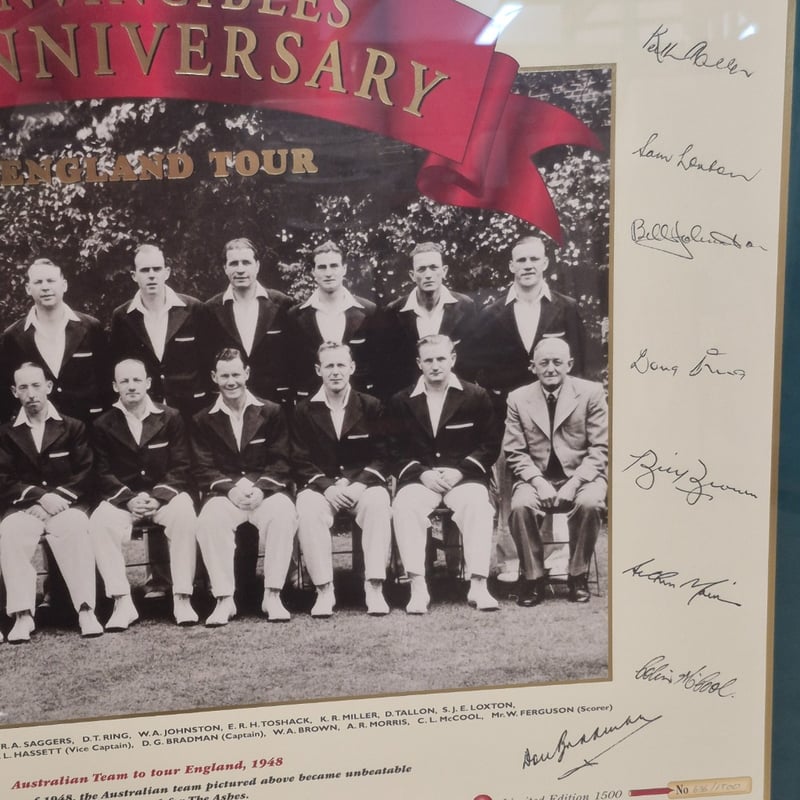 NVINCIBLES
NNIVERSARY
ENGLAND TOUR
Keith Miller
Sam Loxton
Bill Johnston
Doug Ring
Bill Brown
Arthur Morris
Colin McCool.
R.A. SAGGERS, D.T. RING, W.A. JOHNSTON, E.R.H. TOSHACK, K.R. MILLER, D. TALLON, S.J.E. LOXTON,
L. HASSETT (Vice Captain), D.G. BRADMAN (Captain), W.A. BROWN, A.R. MORRIS, C.L. McCOOL, Mr. W. FERGUSON (Scorer)
Don Bradman
Australian Team to tour England, 1948
of 1948, the Australian team pictured above became unbeatable
for The Ashes.
Limited Edition 1500
No 636/1500